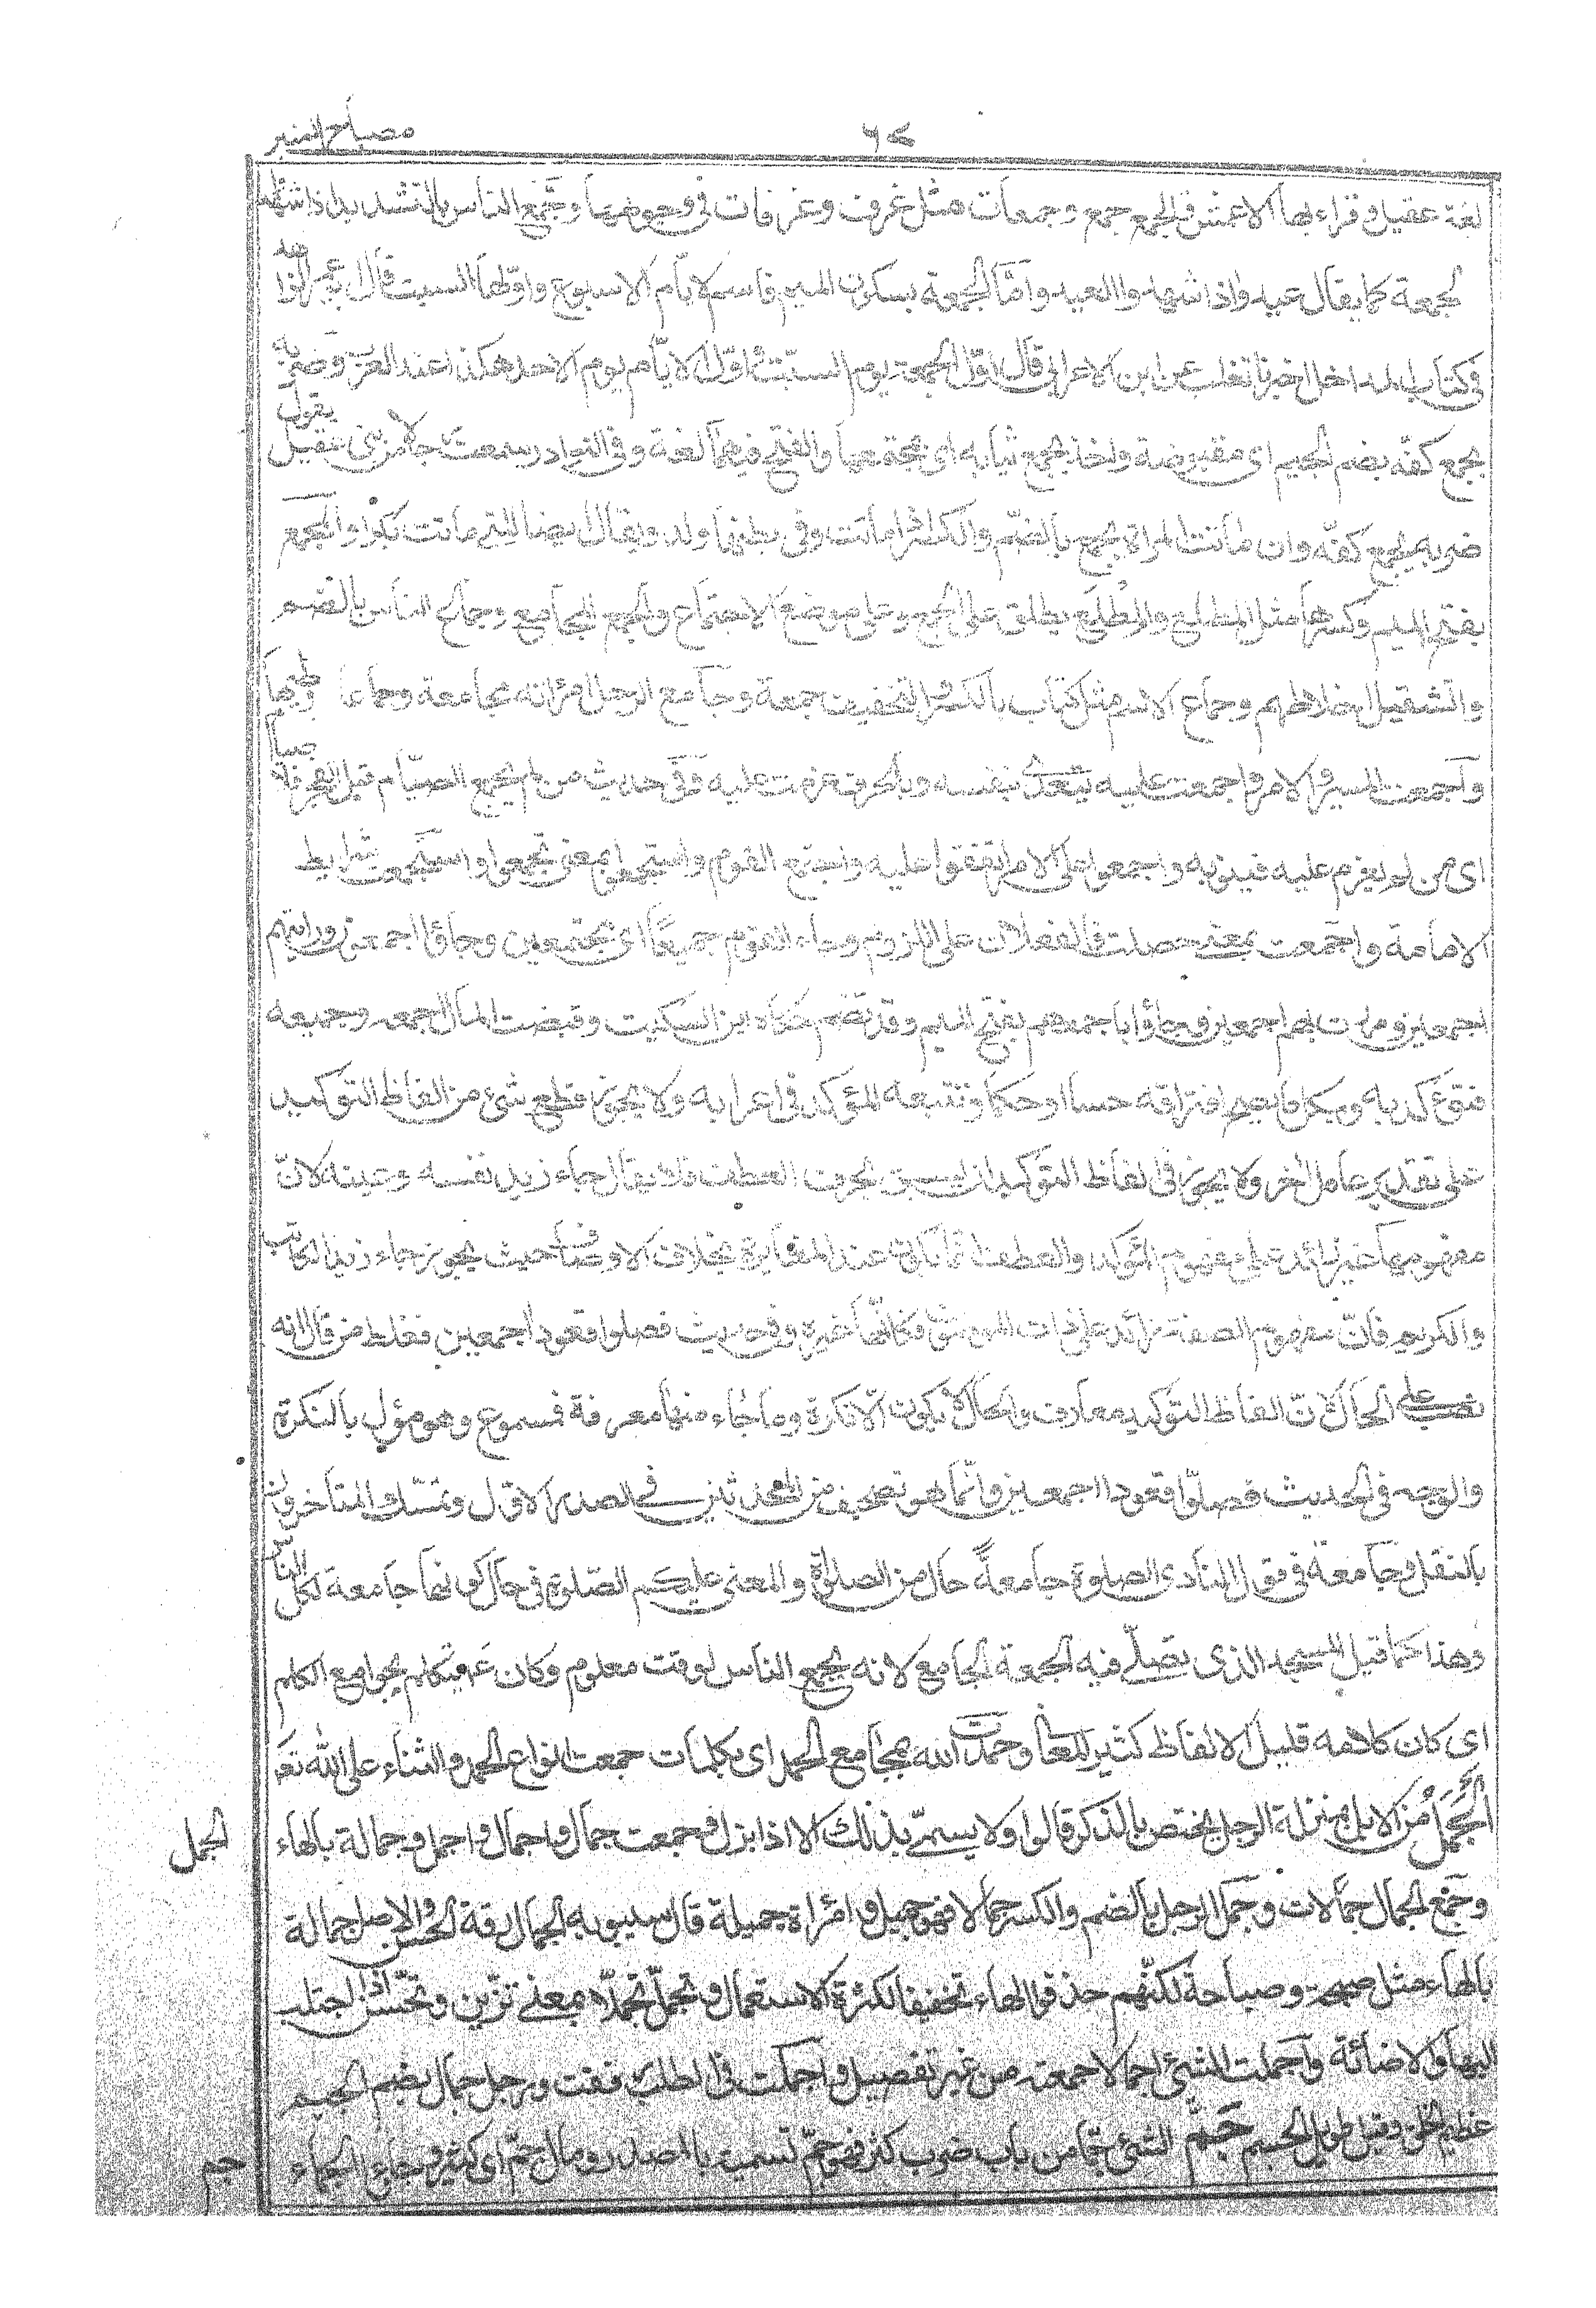 مصباح المنير
لغة عقيل وقراء بها الاعمش والجمع جمع وجمعات مثل غرف وغرفات في وجوهها وجمّع الناس بالتشديد اذا شهدوا
لجمعة كما يقال عيدوا اذا شهدوا العيد وامّا الجمعة بسكون الميم فاسم لايام الاسبوع واوّلها السبت قال ابو عمر الزاهد
في كتاب المداخل اخبرنا ثعلب عن ابن الاعرابي قال اوّل الجمعة يوم السبت واوّل الايّام يوم الاحد هكذا عند العرب وضربه
بجمع كفّه بضم الجيم اى مقبوضة واخذ بجمع ثيابه اى بمجتمعها والفتح فيهما لغة وفى النوادر سمعت رجلا من بنى عقيل يقول
ضربه بجمع كفّه وان ماتت المراة بجمع بالضّم والكسر اذا ماتت وفى بطنها ولد ويقال ايضا للتى ماتت بكرا والمجمع
بفتح الميم وكسرها مثل المطلع والمطلع يطلق على الجمع وعلى موضع الاجتماع والجمع المجامع وجماع الناس بالضم
والتثقيل اخلاطهم وجماع الاثم مثل كتاب بالكسر والتخفيف جمعه وجامع الرجل امرئته مجامعة وجماعا وطئها
واجمعت المسير والامر واجمعت عليه يتعدّى بنفسه وبالحرف عزمت عليه وفى حديث من لم يجمع الصيّام قبل الفجر فلا صيام له
اى من لم يعزم عليه فينويه واجمعوا على الامر اتفقوا عليه واجتمع القوم واستجمعوا بمعنى تجمعوا واستجمعت شرايط
الامامة واجتمعت بمعنى حصلت فالفعلان على اللزوم وجاء القوم جميعًا اى مجتمعين وجاؤا اجمعون ورايتهم
اجمعين ومررت بهم اجمعين وجاؤا باجمعهم بفتح الميم وقد تضم حكاه ابن السكيت وقبضت المال اجمعه وجميعه
فتؤكد به كل ما يصح افتراقه حسا او حكما وتتبعه المؤكد فى اعرابه ولا يجوز قطع شئ من الفاظ التوكيد
على تقدير عامل اخر ولا يجوز فى الفاظ التوكيد ان ينسق بحرف العطف فلا يقال جاء زيد نفسه وعينه لانّ
مفهومها غير زائد على مفهوم المؤكد والعطف انما يكون عند المغايرة بخلاف الاوصاف حيث يجوز جاء زيد الكاتب
والكريم فانّ مفهوم الصفة زائد على ذات الموصوف فكانّها غيره وفى حديث فصلوا قعودا اجمعين فغلط من قال انه
نصب على الحال لانّ الفاظ التوكيد معارف والحال لا تكون الّا نكرة وما جاء منها معرفة فمسموع وهو مؤل بالنكرة
والوجه فى الحديث فصلّوا قعودا اجمعين وانّما هو تصحيف من المحدثين فى الصدر الاول وتمسّك المتاخرون
بالنقل وجامعة فى قول المنادى الصلوة جامعةً حال من الصلوة والمعنى عليكم الصّلوة فى حال كونها جامعة لكل الناس
وهذا كما قيل للمسجد الذى تصلّى فيه الجمعة الجامع لانه يجمع الناس لوقت معلوم وكان عم يتكلم بجوامع الكلم
اى كان كلامه قليل الالفاظ كثير المعانى وحمدت الله بمجامع الحمد اى بكلمات جمعت انواع الحمد والثناء على الله تع
الجمل
الْجَمَلُ من الابل بمنزلة الرجل يختص بالذكر قالوا ولا يسمّى بذلك الا اذا بزل وجمعت جمال واجمال واجمل وجمالة بالهاء
وجمع الجمال جمالات وجمل الرجل بالضم والكسر جمالا فهو جميل وامرأة جميلة قال سيبويه الجمال رقة الحسن والاصل جمالة
بالهاء مثل صبح وصباحة لكنّهم حذفوا الهاء تخفيفا لكثرة الاستعمال وتجمّل تجمّلا بمعنى تزّين وتحّسن اذا اجتلب
البهاء والاضائة واجملت الشئ اجمالا جمعته من غير تفصيل واجملت فى الطلب رفقت ورجل جمالى بضم الجيم
جم
عظيم الخلق وقيل طويل الجسم جمّ الشئ جمّا من باب ضرب كثر فهو جمّ تسمية بالمصدر ومال جمّ اى كثير وجاؤا الجمّاء